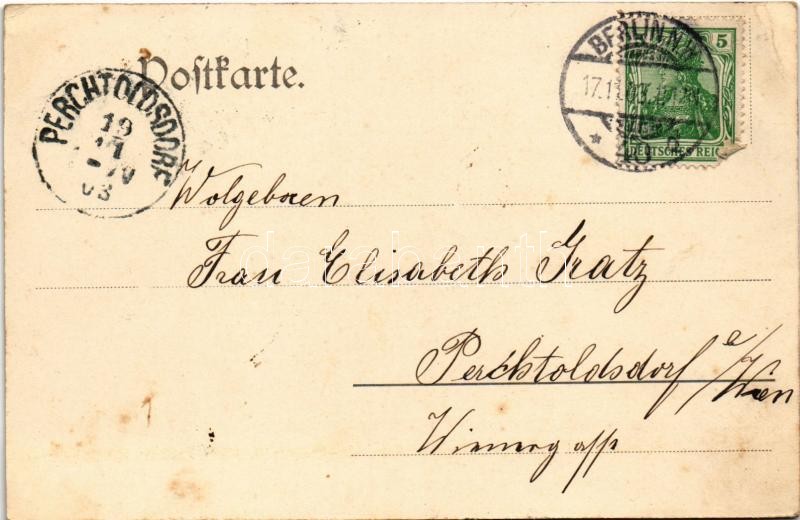 Postkarte.
BERLIN N.W.
17.11.03.
40 a
5
DEUTSCHES REICH
PERCHTOLDSDORF
19
11
03
Wolgeboren
Frau Elisabeth Gratz
Perchtoldsdorf a/Wien
Wienergasse
darabanth